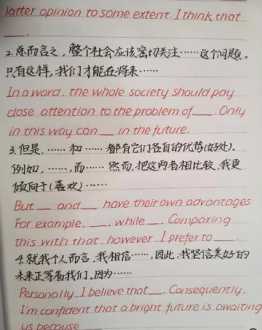 latter opinion to some extent. I think that
____.
2. 总而言之，整个社会应该密切关注……这个问题。
只有这样，我们才能在将来……
In a word, the whole society should pay
close attention to the problem of ___. Only
in this way can ___ in the future.
3. 但是，……和……都有它们各自的优势(好处)。
例如，……，而……然而，把这两者相比较，我更
倾向于(喜欢)……
But ___ and ___ have their own advantages
For example, ___, while ___. Comparing
this with that, however I prefer to ___.
4. 就我个人而言，我相信……，因此，我坚信美好的
未来正等着我们，因为……
Personally, I believe that ___. Consequently,
I'm confident that a bright future is awaiting
us because